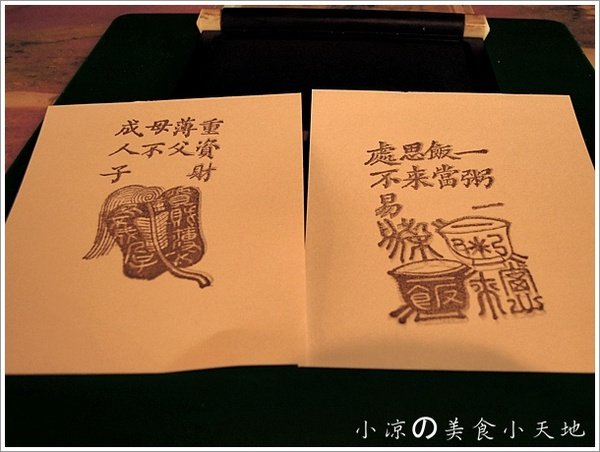 重資財
薄父
母不
成人子
一粥一
飯當
思来
處不易
粥
飯
小涼の美食小天地